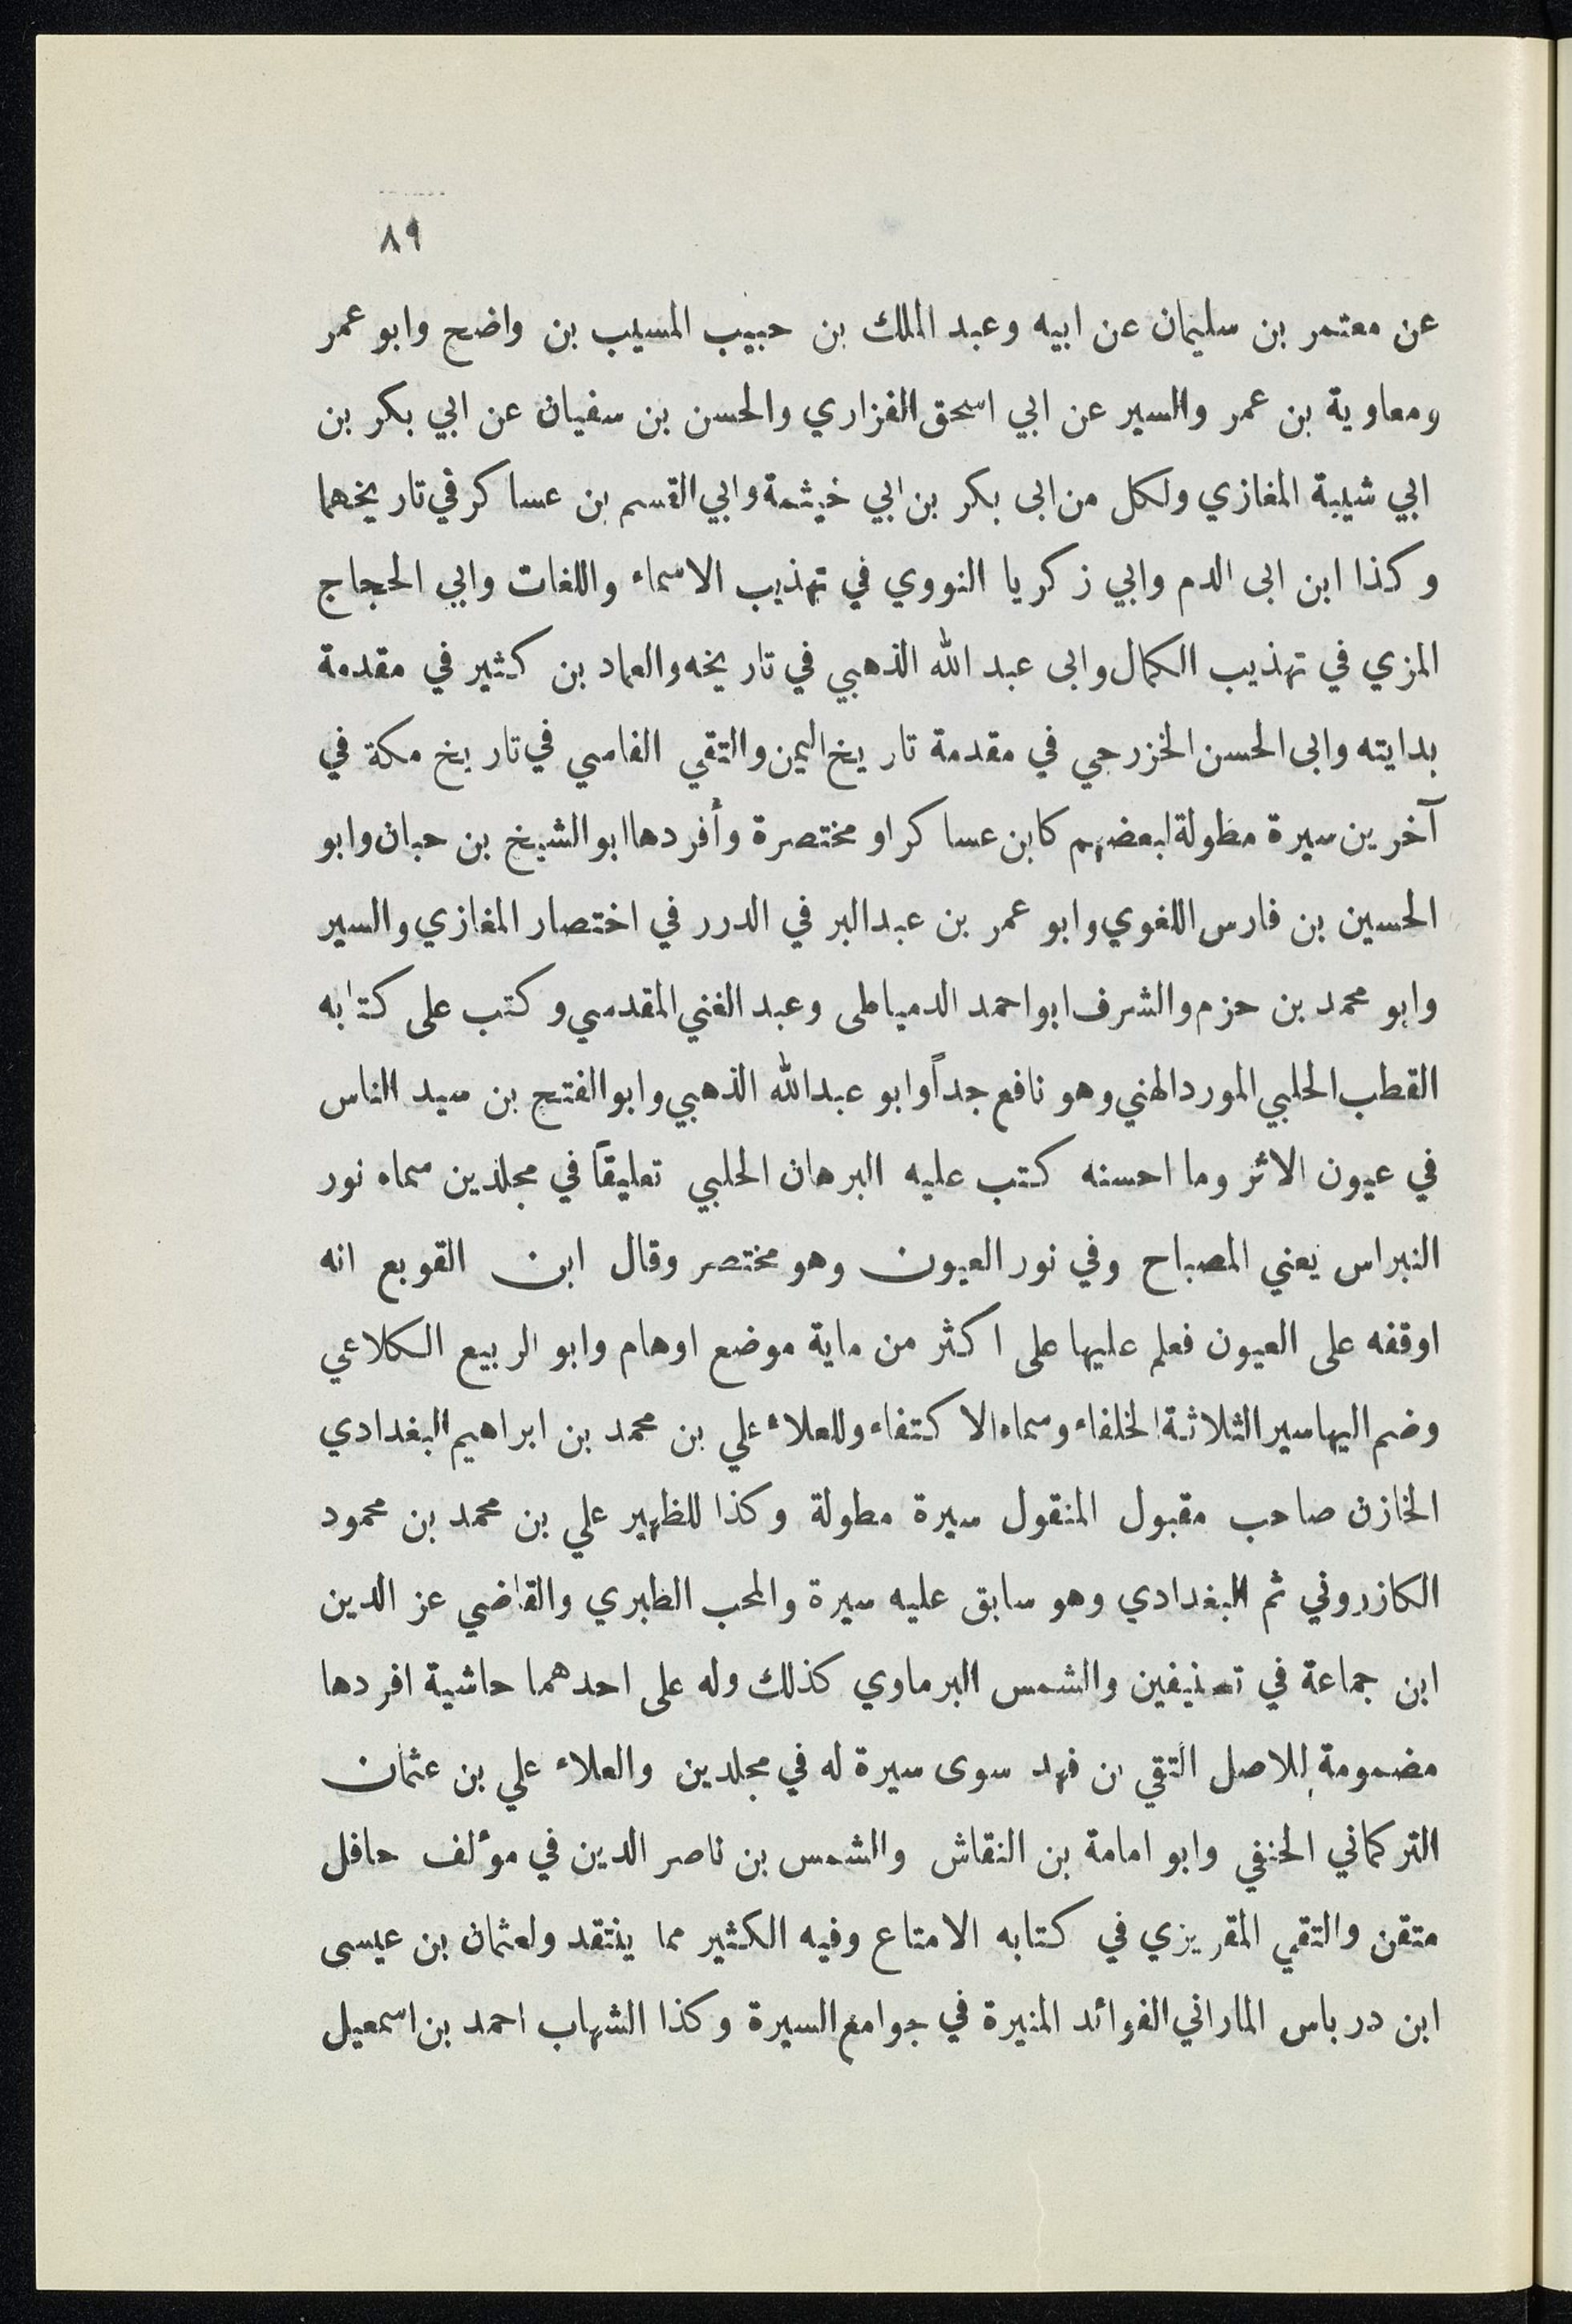 ٨٩
عن معتمر بن سليمان عن ابيه وعبد الملك بن حبيب المسيب بن واضح وابو عمر
ومعاوية بن عمر والسير عن ابي اسحق الفزاري والحسن بن سفيان عن ابي بكر بن
ابي شيبة المغازي ولكل من ابى بكر بن ابي خيثمة وابي القسم بن عساكر في تاريخهما
وكذا ابن ابى الدم وابي زكريا النووي في تهذيب الاسماء واللغات وابي الحجاج
المزي في تهذيب الكمال وابى عبد الله الذهبي في تاريخه والعماد بن كثير في مقدمة
بدايته وابى الحسن الخزرجي في مقدمة تاريخ اليمن والتقي الفاسي في تاريخ مكة في
آخرين سيرة مطولة لبعضهم كابن عساكر او مختصرة وأفردها ابو الشيخ بن حبان وابو
الحسين بن فارس اللغوي وابو عمر بن عبد البر في الدرر في اختصار المغازي والسير
وابو محمد بن حزم والشرف ابو احمد الدمياطى وعبد الغني المقدسي وكتب على كتابه
القطب الحلبي المورد الهني وهو نافع جداً وابو عبد الله الذهبي وابو الفتح بن سيد الناس
في عيون الاثر وما احسنه كتب عليه البرهان الحلبي تعليقاً في مجلدين سماه نور
النبراس يعني المصباح وفي نور العيون وهو مختصر وقال ابن القوبع انه
اوقفه على العيون فعلم عليها على اكثر من ماية موضع اوهام وابو الربيع الكلاعي
وضم اليها سير الثلاثة الخلفاء وسماه الاكتفاء وللعلاء علي بن محمد بن ابراهيم البغدادي
الخازن صاحب مقبول المنقول سيرة مطولة وكذا للظهير علي بن محمد بن محمود
الكازروني ثم البغدادي وهو سابق عليه سيرة والمحب الطبري والقاضي عز الدين
ابن جماعة في تصنيفين والشمس البرماوي كذلك وله على احدهما حاشية افردها
مضمومة للاصل التقي بن فهد سوى سيرة له في مجلدين والعلاء علي بن عثمان
التركماني الحنفي وابو امامة بن النقاش والشمس بن ناصر الدين في مؤلف حافل
متقن والتقي المقريزي في كتابه الامتاع وفيه الكثير مما ينتقد ولعثمان بن عيسى
ابن درباس الماراني الفوائد المنيرة في جوامع السيرة وكذا الشهاب احمد بن اسمعيل